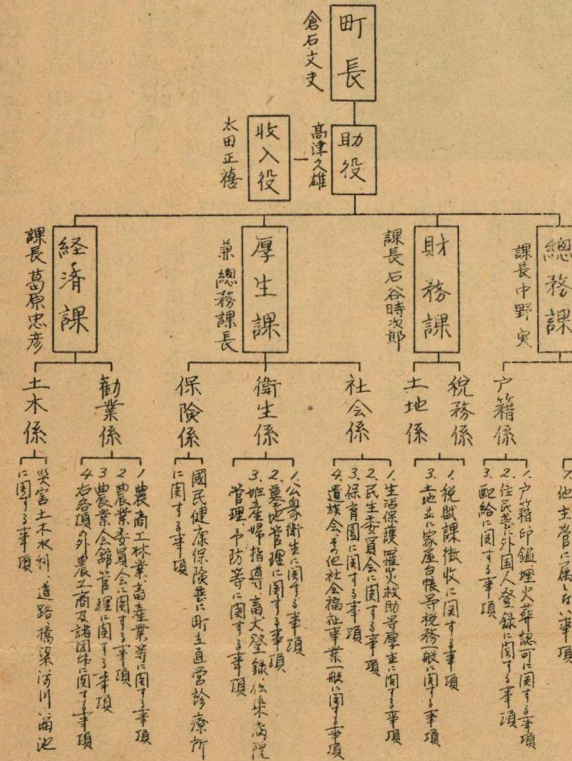 町長
倉石文吏
助役
高津久雄
收入役
太田正禧
總務課
課長中野実
戸籍係
1.戸籍印鑑埋火葬認可に関する事項
2.住民票外国人登録に関する事項
3.配給に関する事項
財務課
課長石谷時次郎
税務係
土地係
1.税賦課徴收に関する事項
3.土地並に家屋台帳等税務一般に関する事項
厚生課
兼總務課長
社会係
1.生活保護罹火救助等厚生に関する事項
2.民生委員会に関する事項
3.保育園に関する事項
4.遺族会その他社会福祉事業一般に関する事項
衛生係
1.公衆衛生に関する事項
2.墓地管理に関する事項
3.妊産婦指導畜犬登録伝染病院
管理予防等に関する事項
保険係
國民健康保険並に町立直営診療所
に関する事項
経済課
課長葛原忠彦
勧業係
1.農商工林業畜産業等に関する事項
2.農業委員会に関する事項
3.農業会館管理に関する事項
4.右各項の外農工商及諸団体に関する事項
土木係
災害土木水利、道路橋梁河川溜池
に関する事項